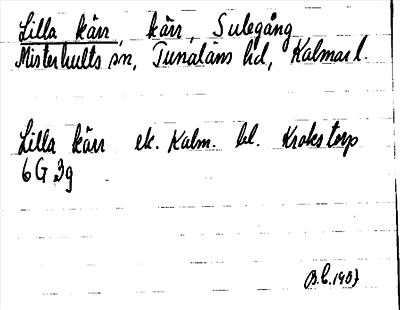 Lilla kärr, kärr, Sulegång
Misterhults sn, Tunaläns hd, Kalmar l.
Lilla kärr ek. Kalm. bl. Krokstorp
6G 3g